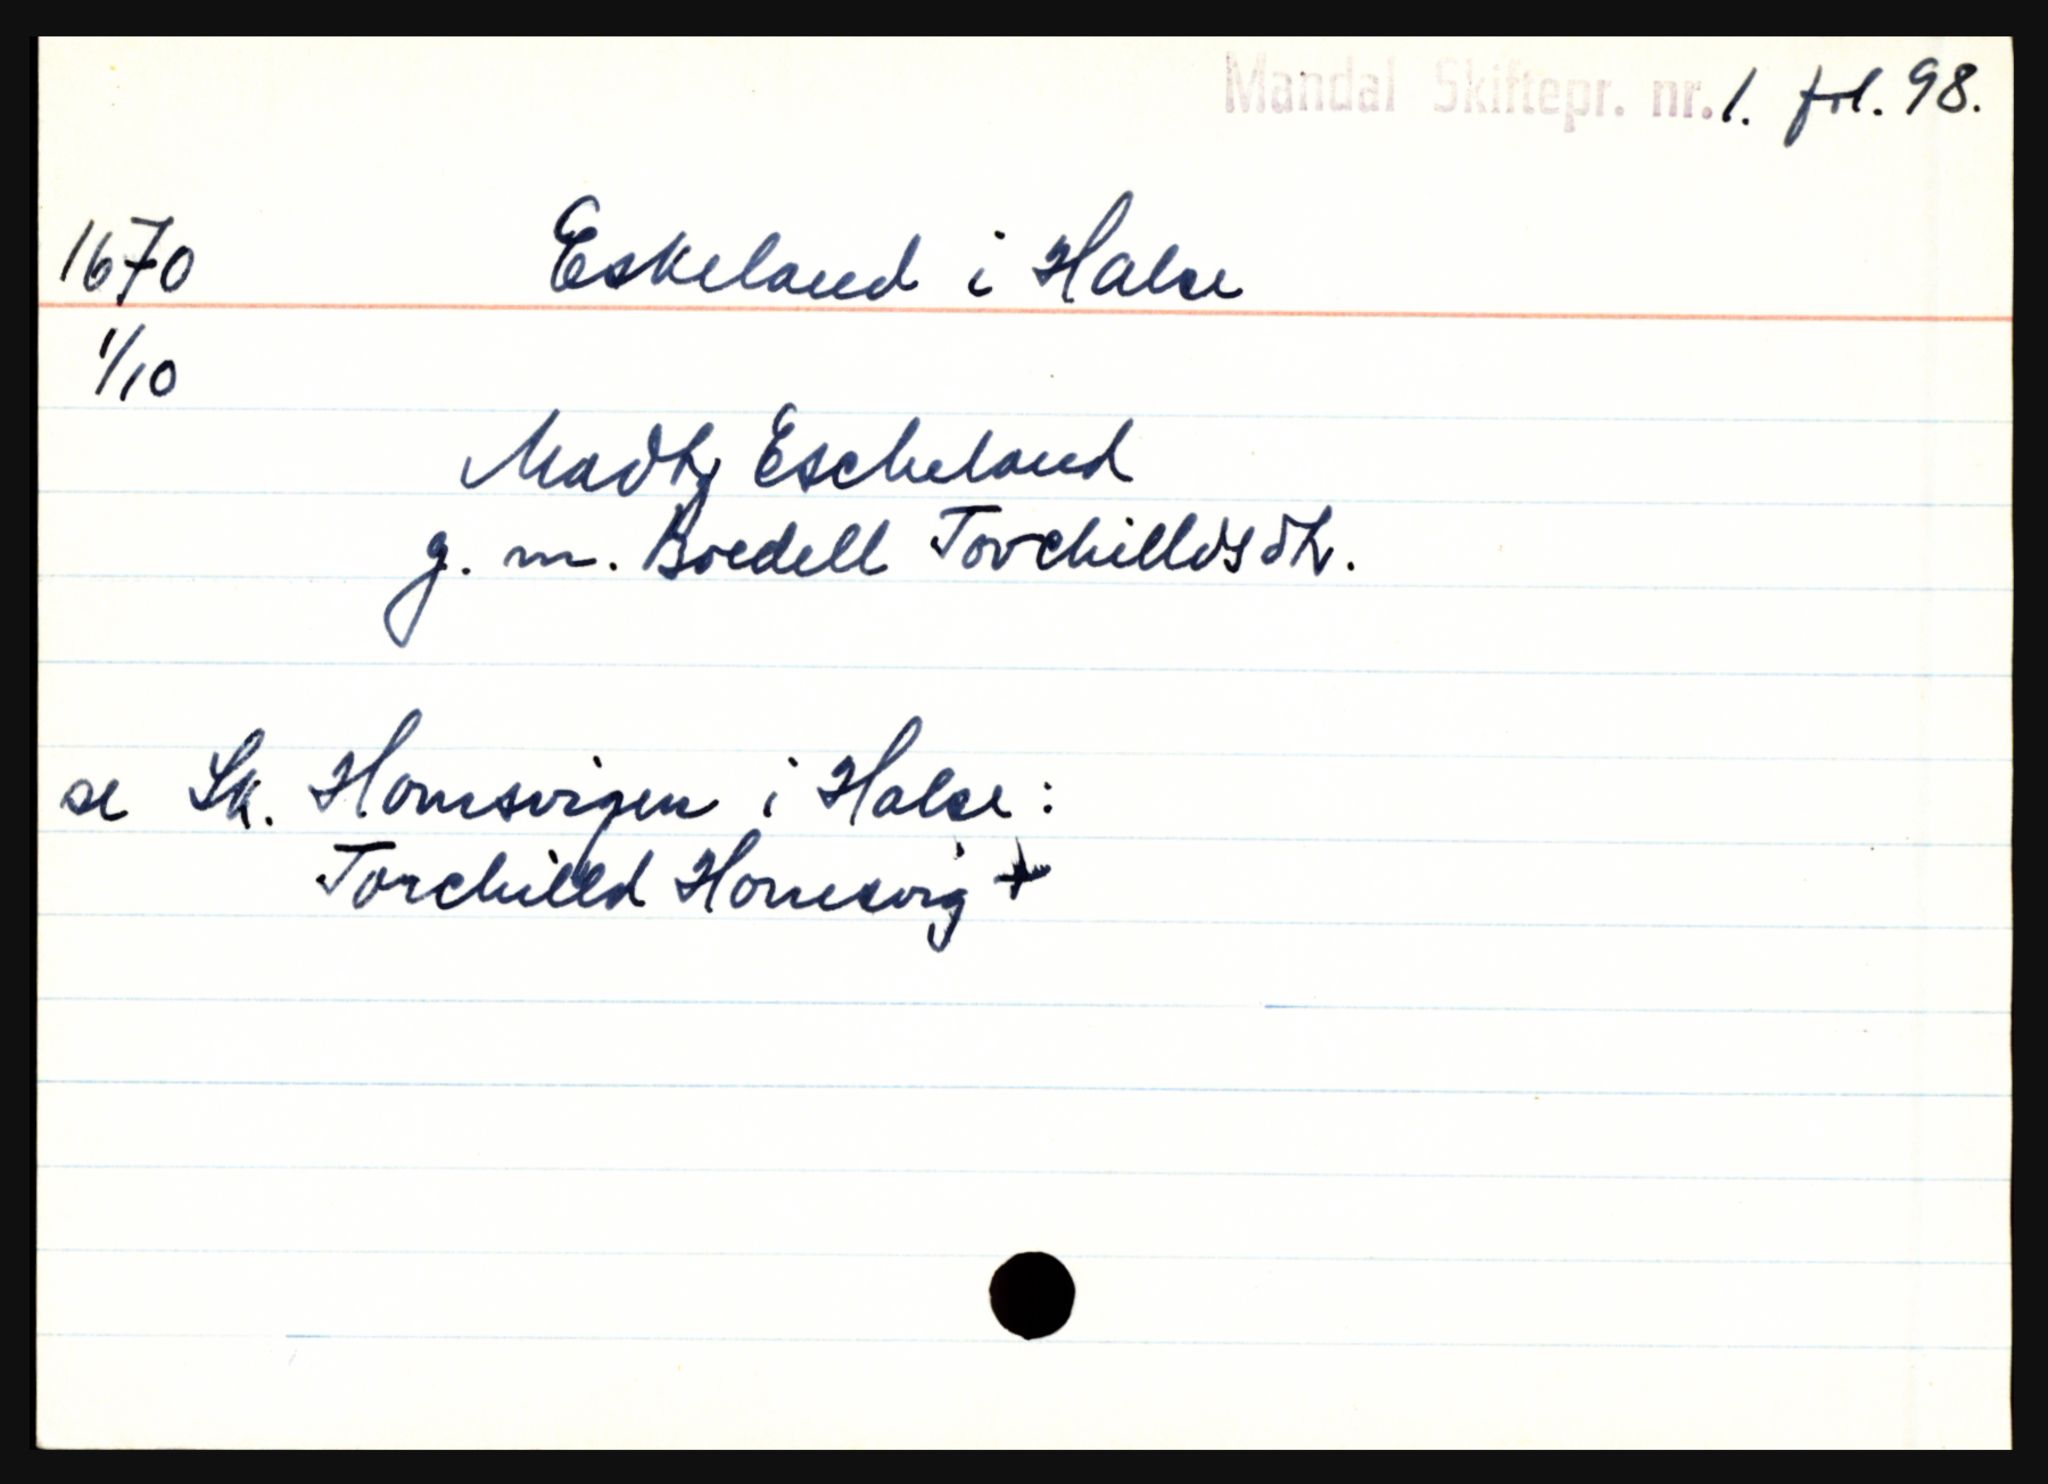 Mandal Skiftepr. nr. 1. fol. 98.
1670 Eskeland i Halse
1/10
Madtz Escheland
g. m. Boedell Torchilldsdtr.
se Sk. Homsvigen i Halse:
Torchilld Homsvig +